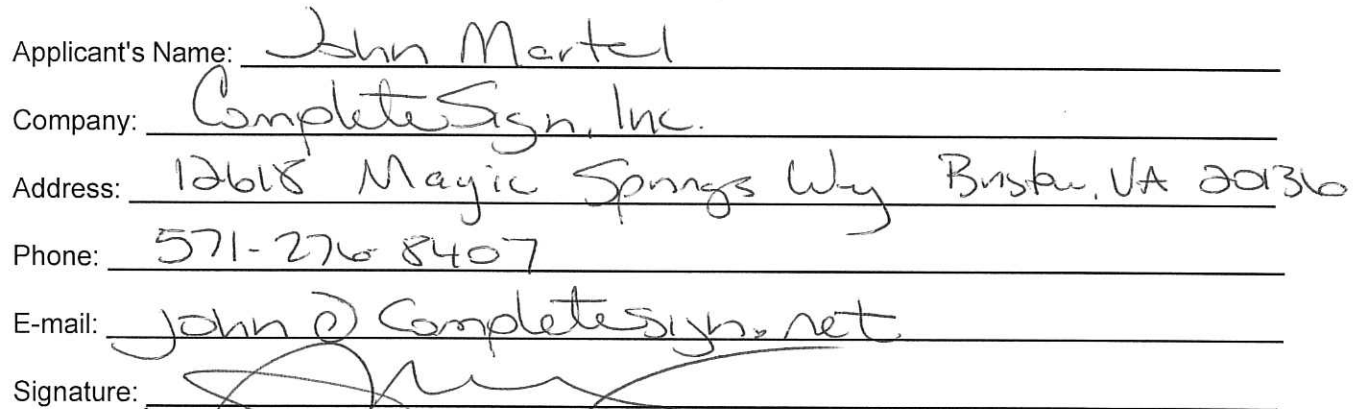 Applicant's Name: John Martel
Company: Complete Sign, Inc.
Address: 12618 Magic Springs Wy Bristow, VA 20136
Phone: 571-276-8407
E-mail: john@completesign.net
Signature: